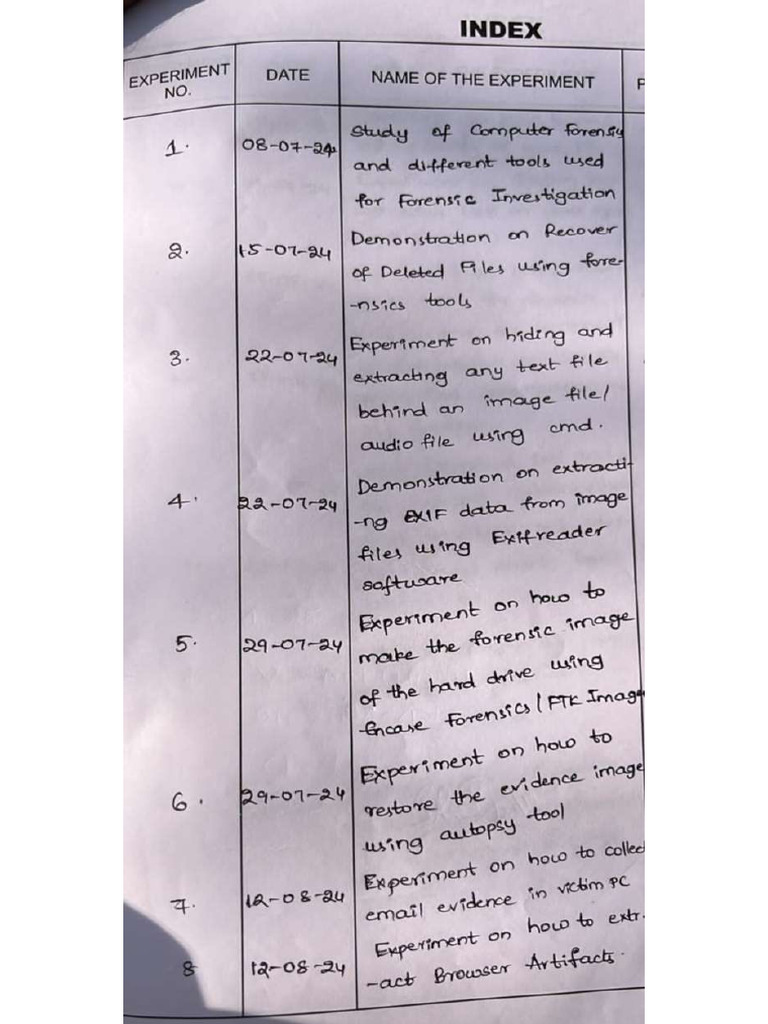 INDEX
EXPERIMENT NO. DATE NAME OF THE EXPERIMENT P
1. 08-07-24 Study of Computer forensi
and different tools used
for Forensic Investigation
2. 15-07-24 Demonstration on Recover
of Deleted Files using fore-
-nsics tools
3. 22-07-24 Experiment on hiding and
extracting any text file
behind an image file/
audio file using cmd.
4. 22-07-24 Demonstration on extracti-
-ng EXIF data from image
files using Exifreader
software
5. 29-07-24 Experiment on how to
make the forensic image
of the hard drive using
Encase Forensics/FTK Image
6. 29-07-24 Experiment on how to
restore the evidence image
using autopsy tool
7. 12-08-24 Experiment on how to collec
email evidence in victim PC
8 12-08-24 Experiment on how to extr.
-act Browser Artifacts.